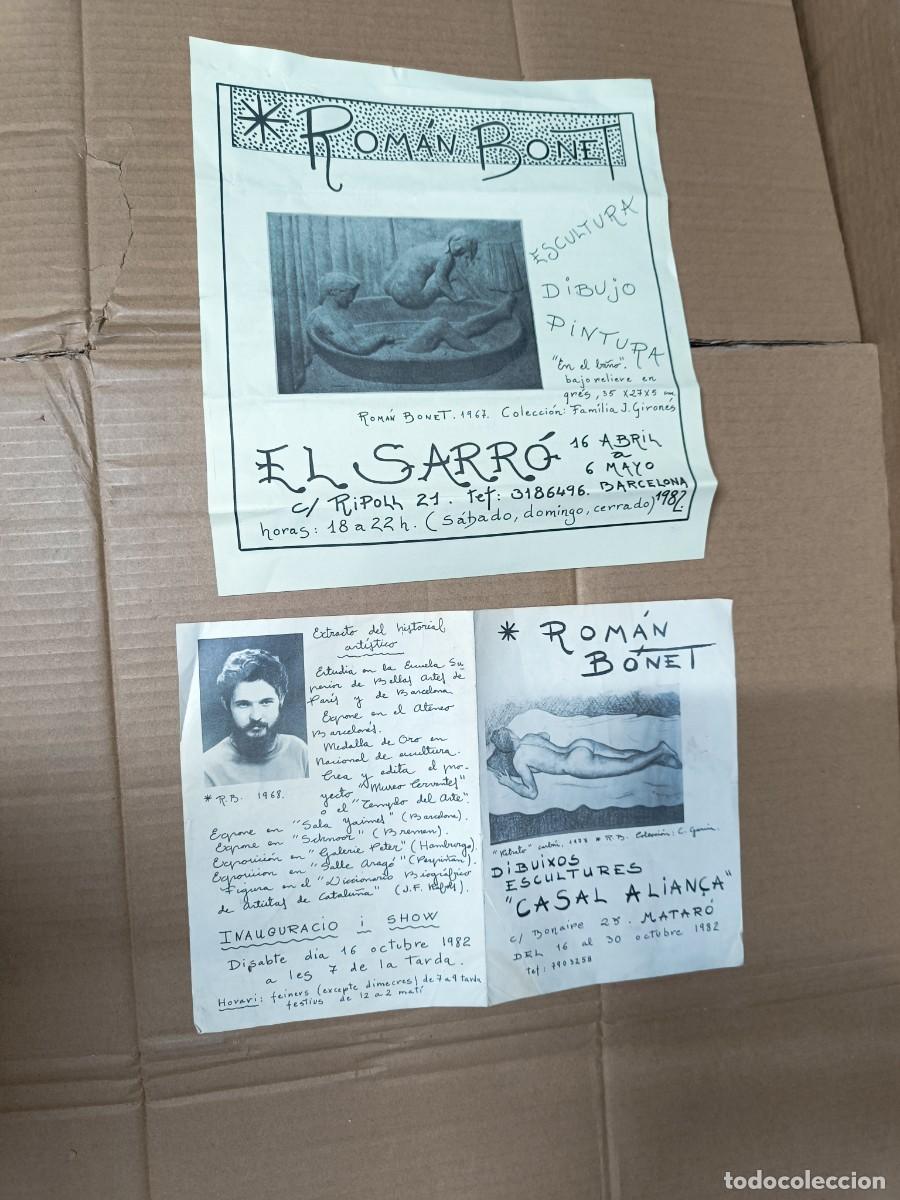 * ROMÁN BONET
ESCULTURA
DIBUJO
PINTURA
"En el baño".
bajorelieve en
grés, 35 x 27 x 5 cm.
ROMÁN BONET. 1967. Colección: Família J. Gironés
EL SARRÓ
16 ABRIL
a
6 MAYO
BARCELONA
1982.
c/ RIPOLL 21. tef: 3186496.
horas: 18 a 22 h. (sábado, domingo, cerrado)
Extracto del historial
artístico
Estudia en la Escuela Su-
perior de Bellas Artes de
París y de Barcelona
Expone en el Ateneo
Barcelonés.
Medalla de Oro en
Nacional de escultura.
Crea y edita el pro-
yecto "Museo Cervantes"
o el "Templo del Arte".
* R.B. 1968.
Expone en "Sala Jaimes" (Barcelona).
Expone en "Schnoor" (Bremen).
Exposición en "Galerie Peter" (Hamburgo).
Exposicion en "Salle Aragó" (Perpiñán).
Figura en el "Diccionario Biográfico
de Artistas de Cataluña" (J.F. Ráfols).
INAUGURACIO i SHOW
Disabte dia 16 octubre 1982
a les 7 de la tarda.
Horari: feiners (excepte dimecres) de 7 a 9 tarda
festius de 12 a 2 matí
* ROMÁN
BONET
1978 * R.B. Colección: C.
DIBUIXOS
ESCULTURES
"CASAL ALIANÇA"
c/ Bonaire 25. MATARÓ
DEL 16 al 30 octubre 1982
tef: 7903258
todocoleccion